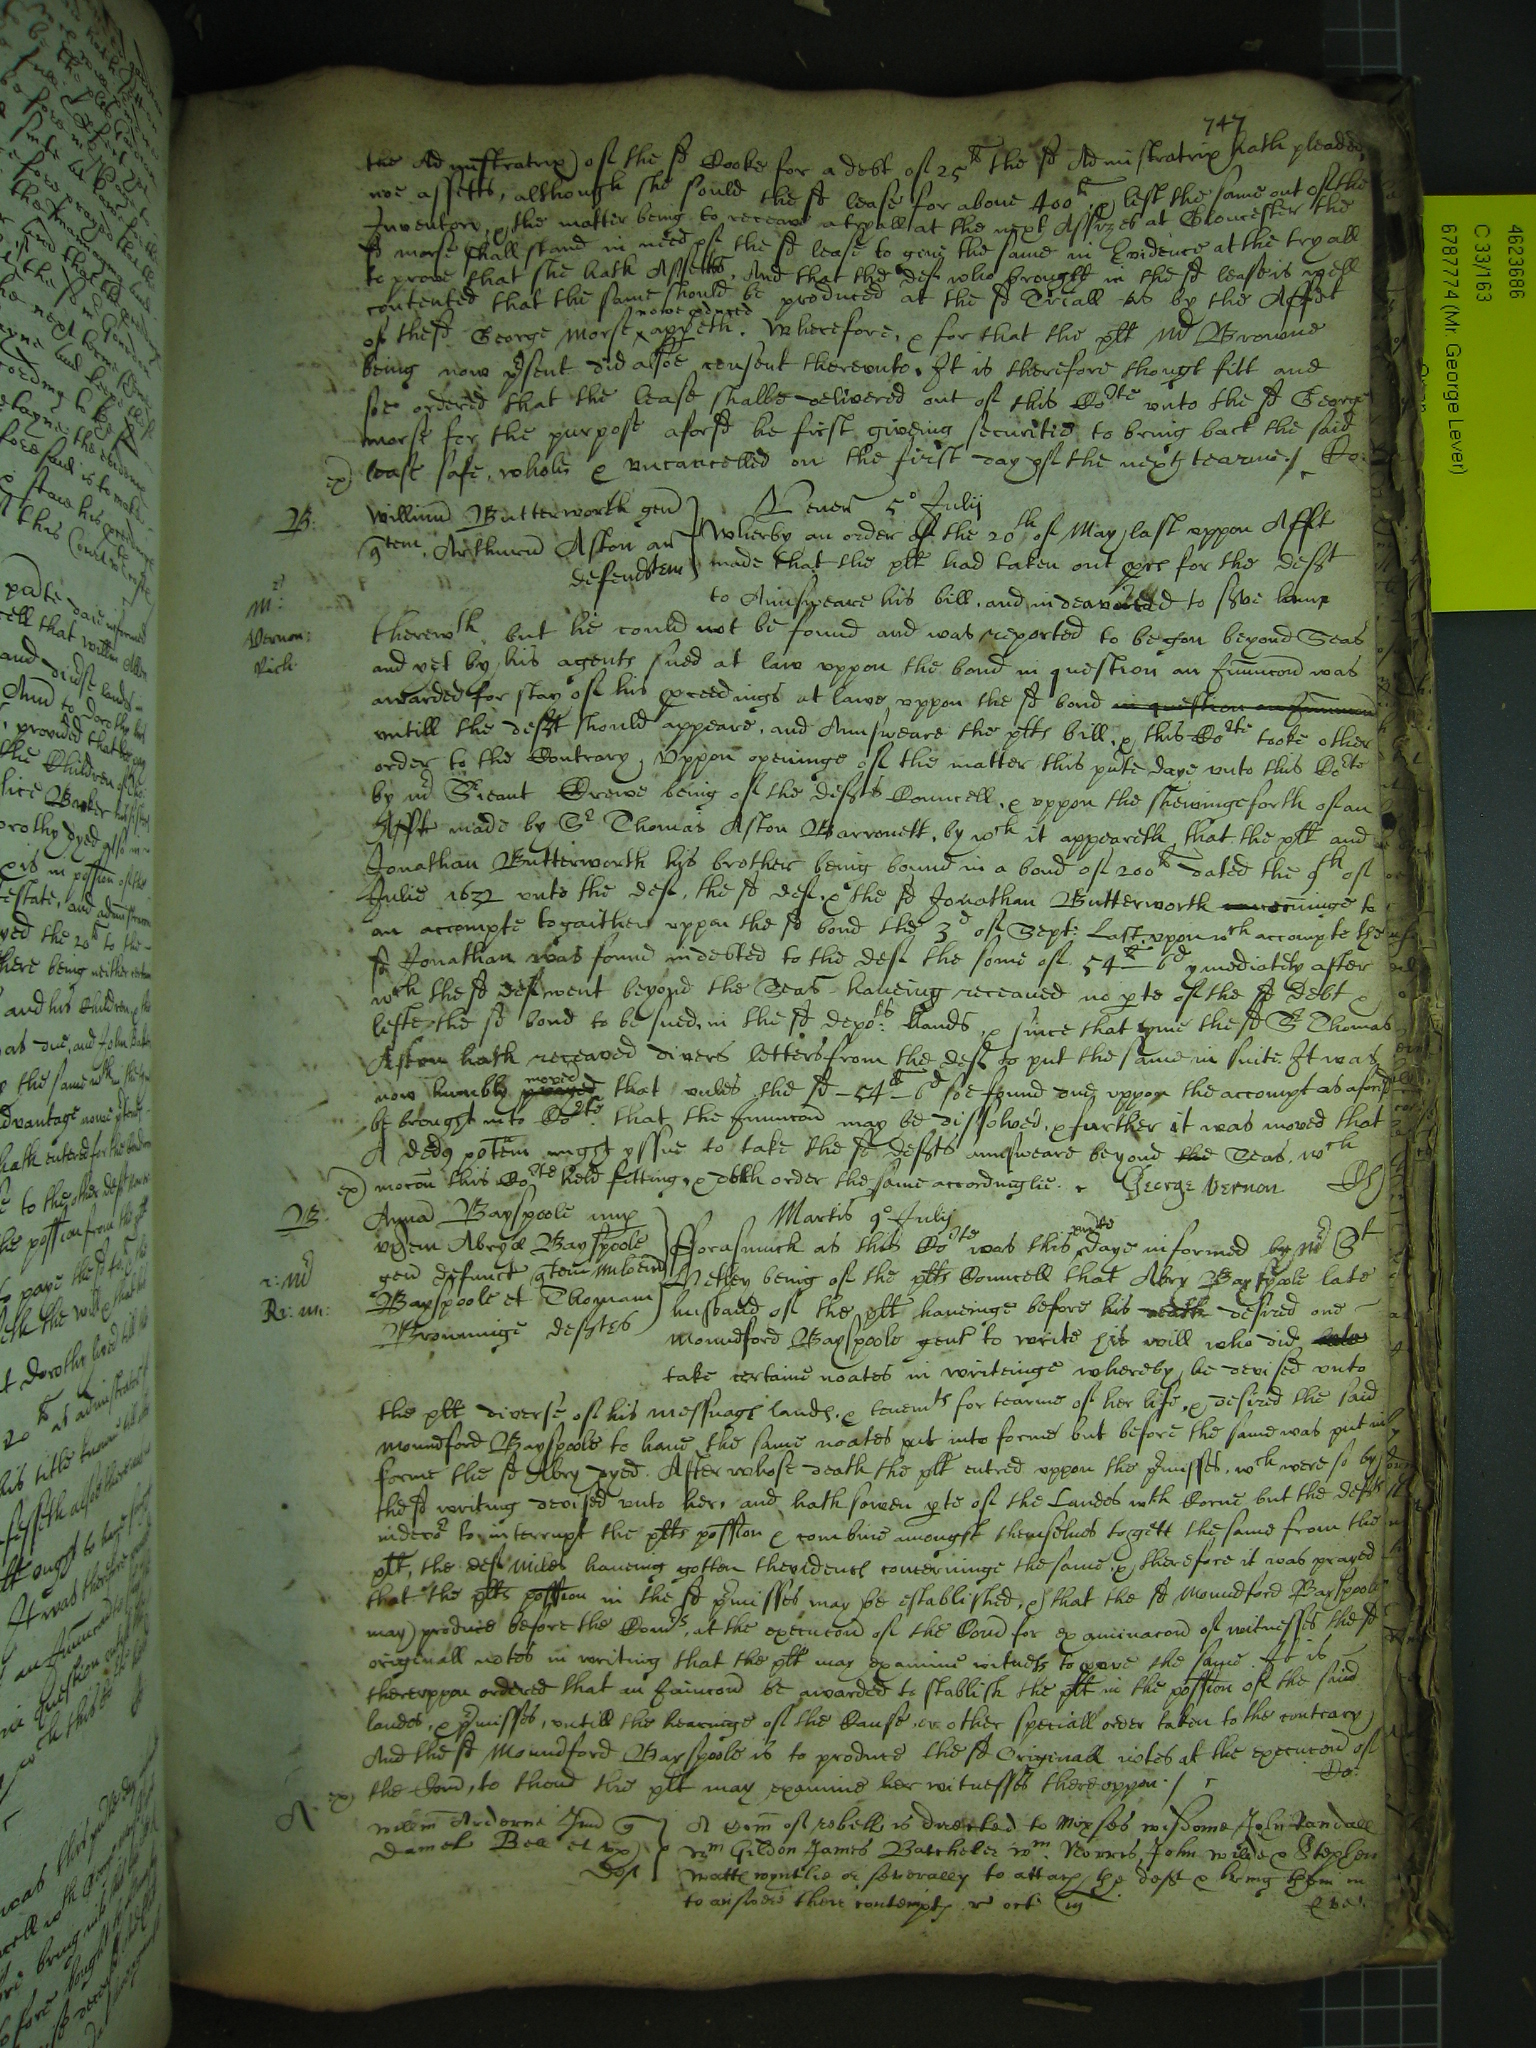 747
the Administratrix) of the sd Cooke for a debt of 25li the sd Administratrix hath pleaded
noe assetts, although she sould the sd lease for above 400li, & left the same out of the
Inventory, & the matter being to receave a tryall at the next Assizes at Gloucester the
sd Morse shall stand in need of the sd lease to give the same in Evidence at the tryall
to prove that she hath Assetts, And that the def who brought in the sd lease is well
contented that the same should be produced at the sd Triall As by the Affidt
of the sd George Morse now appeth. Wherefore, & for that the plt Mr Browne
being now psent did alsoe consent thereunto. It is therefore thought fitt and
soe ordered that the lease shalbe delivered out of this Corte unto the sd George
Morse for the purpose aforsd he first giveing securitie to bring back the said
ex) lease safe, whole & uncancelled on the first day of the next tearme./ Co:
B: Willimu Butterworth gen Veneris 5o July
qtem. Arthurum Aston ar Wherby an order of the 20th of May last uppon Afft
defendtem made that the plt had taken out pces for the deft
to Aunsweare his bill, and indeavoured to srve him
M:
Vernon: therewth, but he could not be found and was reported to be gon beyond Seas
Rich: and yet by his agents sued at law uppon the bond in question an Iniuncon was
awarded for stay of his pceedings at lawe uppon the sd bond in question an Iniuncon
untill the deft should appeare, and Aunsweare the plts bill, & this Corte tooke other
order to the Contrary, Uppon openinge of the matter this pnte daye unto this Corte
by Mr Srieant Crewe being of the defts Councell, & uppon the shewinge forth of an
Afft made by Sr Thomas Aston Barronett, by wch it appeareth that the plt and
Jonathan Butterworth his brother being bound in a bond of 200li dated the 9th of
Julie 1632 unto the def, the sd def, & the sd Jonathan Butterworth cominge to
an accompte togaither uppon the sd bond the 3d of Sept: Last, uppon wch accompte the
sd Jonathan was found indebted to the def the some of 54li 6d ymediately after
wch the sd def went beyond the Seas haveing receaved no pte of the sd Debt &
lefte the sd bond to be sued, in the sd depots hands, & since that tyme the sd Sr Thomas
Aston hath receaved divers letters from the def to put the same in suite. It was
now humbly moved that unles the sd 54li 6d soe found due uppon the accompt as aforesd
be brought into Corte: that the Iniuncon may be dissolved, & further it was moved that
A ded potem might yssue to take the sd defts aunsweare beyond the Seas, wch
ex) mocon this Corte held fitting, & doth order the same accordinglie. George Vernon
B: Anna Bayspoole nup Martis 9o July
uxem Abrye Bayspoole Forasmuch as this Corte was this pnte daye informed by Mr
gen defunct qtem Miloem being of the plts Councell that Abry Bayspoole late
r: Mr Bayspoole et Thomam husband of the plt haveinge before his death desired one
Browninge deftes Moundford Bayspoole gent to write his will who did
take certaine noates in writeinge whereby he devised unto
the plt diverse of his messuage lands, & tenemts for tearme of her life, & desired the said
Moundford Bayspoole to have the same noates put into forme but before the same was put in
forme the sd Abry dyed. After whose death the plt entred uppon the pmisses, wch were so by
the sd writing devised unto her, and hath sowen pte of the Landes wth Corne but the defts
indevor to interrupt the plts possion & combine amongst themselves to gett the same from the
plt, the def Miles haveing gotten thevidence concerninge the same, & therefore it was prayed
that the plts possion in the sd pmisses may be established, & that the sd Moundford Bayspoole
may produce before the Comrs, at the execucon of the Com for examinacon of witnesses the sd
originall notes in writing that the plt may examine witness to prove the same. It is
thereuppon ordered that an Iniuncon be awarded to stablish the plt in the possion of the said
landes, & pmisses, untill the hearinge of the Cause, or other speciall order taken to the contrary
And the sd Moundford Bayspoole is to produce the sd Originall notes at the execucon of
ex) the Com, to thend the plt may examine her witnesses thereuppon./ Co:
A: Willm Arderne q A Com of rebell is directed to Moyses Wisdome John Randall
Daniel Bee et ux Wm Gildon James Batcheler Wm. Norris, John Wilde & Stephen
Def Watts ioyntlie or severally to attach the deft & bring them in
to answere their contempts